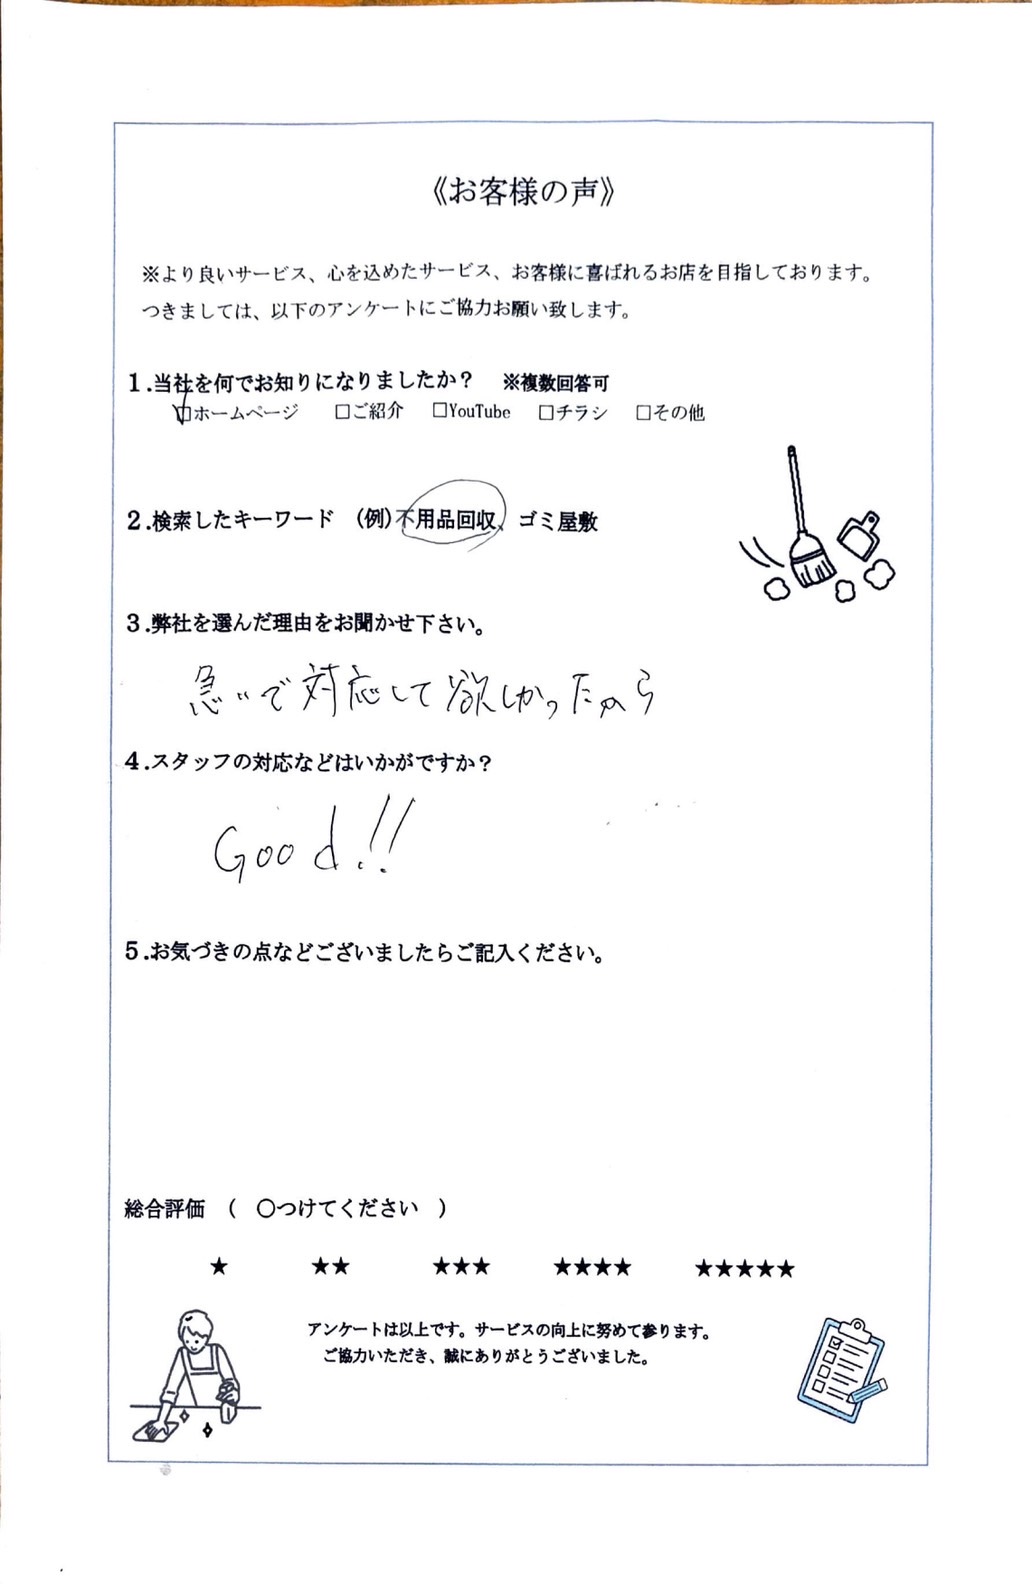 《お客様の声》
※より良いサービス、心を込めたサービス、お客様に喜ばれるお店を目指しております。
つきましては、以下のアンケートにご協力お願い致します。
1.当社を何でお知りになりましたか？　※複数回答可
☑ホームページ　□ご紹介　□YouTube　□チラシ　□その他
2.検索したキーワード　(例)不用品回収、ゴミ屋敷
3.弊社を選んだ理由をお聞かせ下さい。
急いで対応して欲しかったから
4.スタッフの対応などはいかがですか？
Good!!
5.お気づきの点などございましたらご記入ください。
総合評価　(　〇つけてください　)
★　★★　★★★　★★★★　★★★★★
アンケートは以上です。サービスの向上に努めて参ります。
ご協力いただき、誠にありがとうございました。